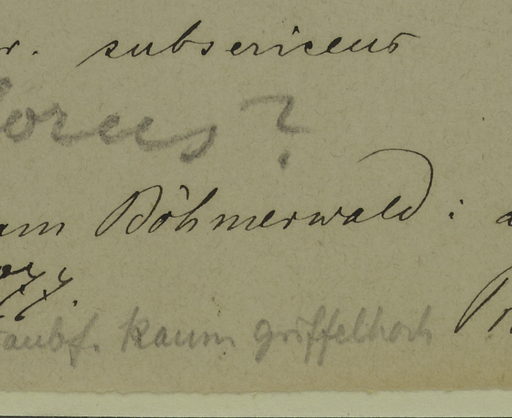 r. subsericeus
orus?
am Böhmerwald: a
Staubf. kaum griffelhoch